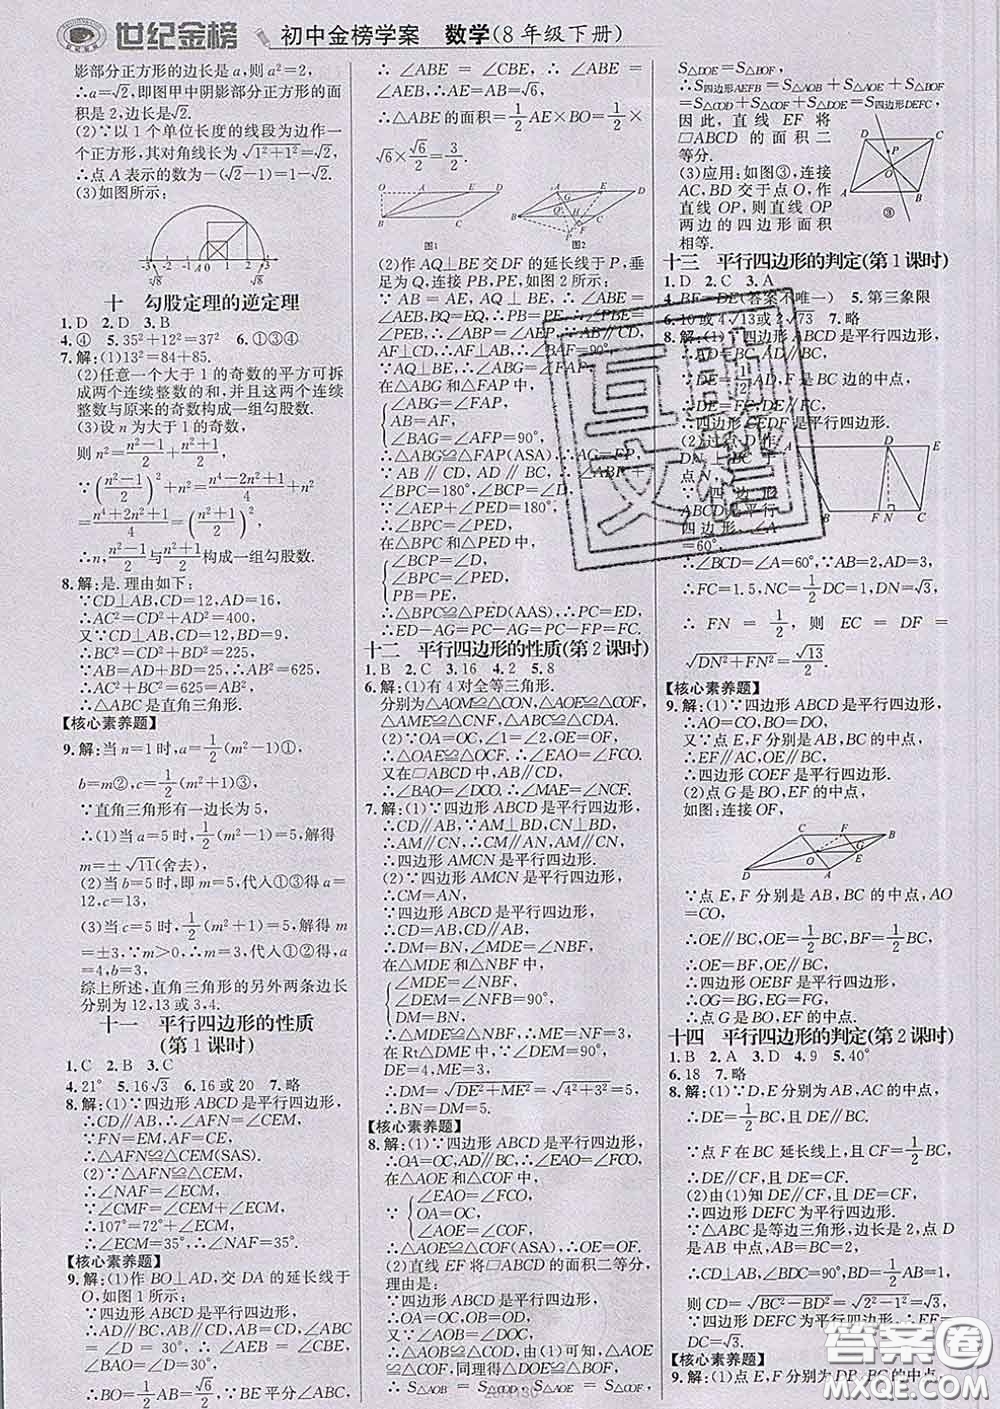 世纪金榜 初中金榜学案 数学(8年级下册)
影部分正方形的边长是a,则a²=2,
∴a=√2,即图甲中阴影部分正方形的面
积是2,边长是√2.
(2)∵以1个单位长度的线段为边作一
个正方形,其对角线长为√(1²+1²)=√2,
∴点A表示的数为-(√2-1)=1-√2.
(3)如图所示:
十 勾股定理的逆定理
1.D 2.D 3.B
4.④ 5.35²+12²=37² 6.①③④
7.解:(1)13²=84+85.
(2)任意一个大于1的奇数的平方可拆
成两个连续整数的和,并且这两个连续
整数与原来的奇数构成一组勾股数.
(3)设n为大于1的奇数,
则n²=(n²-1)/2+(n²+1)/2,
∵((n²-1)/2)²+n²=(n⁴-2n²+1)/4+n²
=(n⁴+2n²+1)/4=((n²+1)/2)²
∴n,(n²-1)/2与(n²+1)/2构成一组勾股数.
8.解:是.理由如下:
∵CD⊥AB,CD=12,AD=16,
∴AC²=CD²+AD²=400,
又∵CD⊥AB,CD=12,BD=9,
∴BC²=CD²+BD²=225,
∵AB=AD+BD=25,∴AB²=625,
∴AC²+BC²=625=AB²,
∴△ABC是直角三角形.
【核心素养题】
9.解:当n=1时,a=1/2(m²-1)①,
b=m②,c=1/2(m²+1)③,
∵直角三角形有一边长为5,
∴(1)当a=5时,1/2(m²-1)=5,解得
m=±√11(舍去);
(2)当b=5时,即m=5,代入①③得,a
=12,c=13,
(3)当c=5时,1/2(m²+1)=5,解得m=
±3,∵m>0,∴m=3,代入①②得,
a=4,b=3;
综上所述,直角三角形的另外两条边长
分别为12,13或3,4.
十一 平行四边形的性质
(第1课时)
1.C 2.B 3.C
4.21° 5.16√3 6.16或20 7.略
8.解:(1)∵四边形ABCD是平行四边形,
∴CD∥AB,∴∠AFN=∠CEM,
∵FN=EM,AF=CE,
∴△AFN≌△CEM(SAS).
(2)∵△AFN≌△CEM,
∴∠NAF=∠ECM,
∵∠CMF=∠CEM+∠ECM,
∴107°=72°+∠ECM,
∴∠ECM=35°,∴∠NAF=35°.
【核心素养题】
9.解:(1)作BO⊥AD,交DA的延长线于
O,如图1所示:
∵四边形ABCD是平行四边形,
∴AD∥BC,AB∥CD,AB=CD=√6,
∴BO=1/2AB=√6/2,∵BE平分∠ABC,
∴∠ABE=∠CBE,∴∠ABE=
∠AEB,∴AE=AB=√6,
∴△ABE的面积=1/2AE×BO=1/2×
√6×√6/2=3/2.
图1 图2
(2)作AQ⊥BE交DF的延长线于P,垂
足为Q,连接PB,PE,如图2所示:
在△ABG和△FAP中,
∠ABG=∠FAP,
∠BAG=∠AFP=90°,
∴△ABG≌△FAP(ASA),
∴∠BPC=∠PED,
在△BPC和△PED中,
∠BCP=∠EDP,
∠BPC=∠PED,
PB=PE,
∴△BPC≌△PED(AAS),∴PC=ED,
∴ED-AG=PC-AG=PC-FP=FC.
十二 平行四边形的性质(第2课时)
1.B 2.C 3.16 4.2 5.8
6.解:(1)有4对全等三角形.
分别为△AOM≌△CON,△AOE≌△COF,
△AME≌△CNF,△ABC≌△CDA.
(2)∵OA=OC,∠1=∠2,OE=OF,
∴△OAE≌△OCF.∴∠EAO=∠FCO.
又在▱ABCD中,AB∥CD,
∴∠BAO=∠DCO.∴∠MAE=∠NCF.
7.解:(1)∵四边形ABCD是平行四边形,
∴CD∥AB,∵AM⊥BD,CN⊥BD,
∴AM∥CN,∴CM∥AN,AM∥CN,
∴四边形AMCN是平行四边形.
(2)∵四边形AMCN是平行四边形,
∴CM=AN,
∵四边形ABCD是平行四边形,
∴CD=AB,CD∥AB,
∴DM=BN,∠MDE=∠NBF,
在△MDE和△NBF中,
∠MDE=∠NBF,
∠DEM=∠NFB=90°,
DM=BN,
∴△MDE≌△NBF,∴ME=NF=3,
在Rt△DME中,∵∠DEM=90°,
DE=4,ME=3,
∴DM=√(DE²+ME²)=√(4²+3²)=5,
∴BN=DM=5.
【核心素养题】
8.解:(1)∵四边形ABCD是平行四边形,
∴OA=OC,AD∥BC,∴∠EAO=∠FCO,
在△AOE和△COF中,
∠EAO=∠FCO,
OA=OC,
∠AOE=∠COF,
∴△AOE≌△COF(ASA),∴OE=OF.
(2)直线EF将▱ABCD的面积二等分,
理由是:
∵四边形ABCD是平行四边形,
∴OA=OC,OB=OD,
又∵∠AOB=∠COD,
∴△AOB≌△COD,
S△DOE=S△BOF,
∴S四边形AEFB=S△AOB+S△AOE+S△BOF
=S△COD+S△COF+S△DOE=S四边形DEFC,
因此,直线EF将
▱ABCD的面积二
等分.
(3)应用:如图③,连接
AC,BD交于点O,作
直线OP,则直线OP
两边的四边形面积
相等.
③
十三 平行四边形的判定(第1课时)
1.D 2.C 3.A
4.BF=DE(答案不唯一) 5.第三象限
8.解:(1)∵四边形ABCD是平行四边形,
∴FC=1.5,NC=1/2DC=1,DN=√3,
∴FN=1/2,则EC=DF=
√(DN²+FN²)=√13/2.
【核心素养题】
9.解:(1)∵四边形ABCD是平行四边形,
∴AO=CO,BO=DO,
又∵点E,F分别是AB,BC的中点,
∴EF∥AC,OE∥BC,
∴四边形COEF是平行四边形.
(2)点G是BO,EF的中点,
如图:连接OF,
∵点E,F分别是AB,BC的中点,AO
=CO,
∴OE∥BC,OE=1/2BC,BF=1/2BC,
∴OE=BF,
∴四边形OEBF是平行四边形,
∴OG=BG,EG=FG,
∴点G是BO,EF的中点.
十四 平行四边形的判定(第2课时)
1.B 2.A 3.D 4.9 5.40°
6.18 7.略
8.解:(1)∵D,E分别为AB,AC的中点,
∴DE=1/2BC,且DE∥BC,
∵点F在BC延长线上,且CF=1/2BC,
∴DE∥CF,且DE=CF.
(2)由(1)知DE∥CF,且DE=CF,
∴四边形DEFC为平行四边形,
∵△ABC是等边三角形,边长是2,点D
是AB的中点,
∴CD⊥AB,∠BDC=90°,BD=1/2AB=1,
则CD=√(BC²-BD²)=√(2²-1²)=√3,
∵四边形DEFC是平行四边形,∴EF=
DC=√3.
【核心素养题】
互助文档
答案圈
MXQE.COM